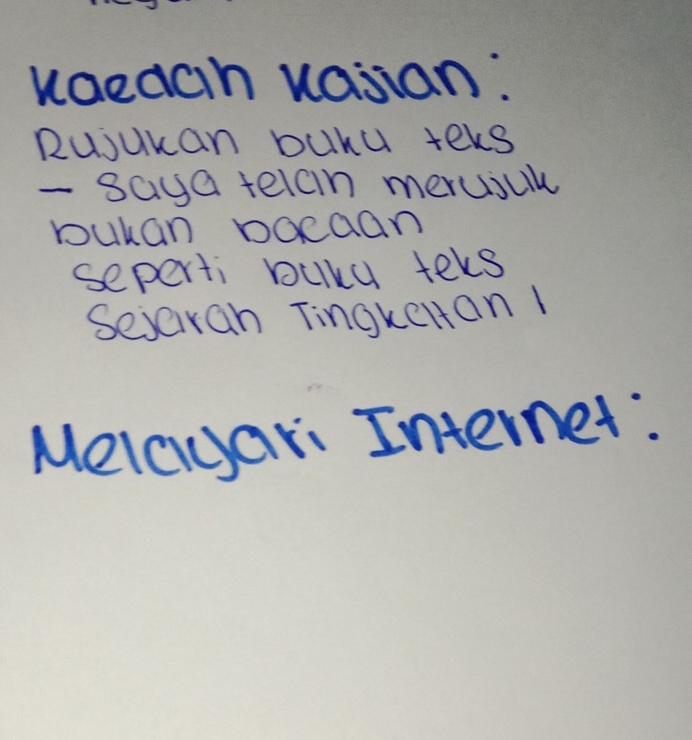 Kaedah Kajian:
Rujukan buku teks
- Saya telah merujuk
bukan bacaan
seperti buku teks
Sejarah Tingkatan 1
Melayari Internet: